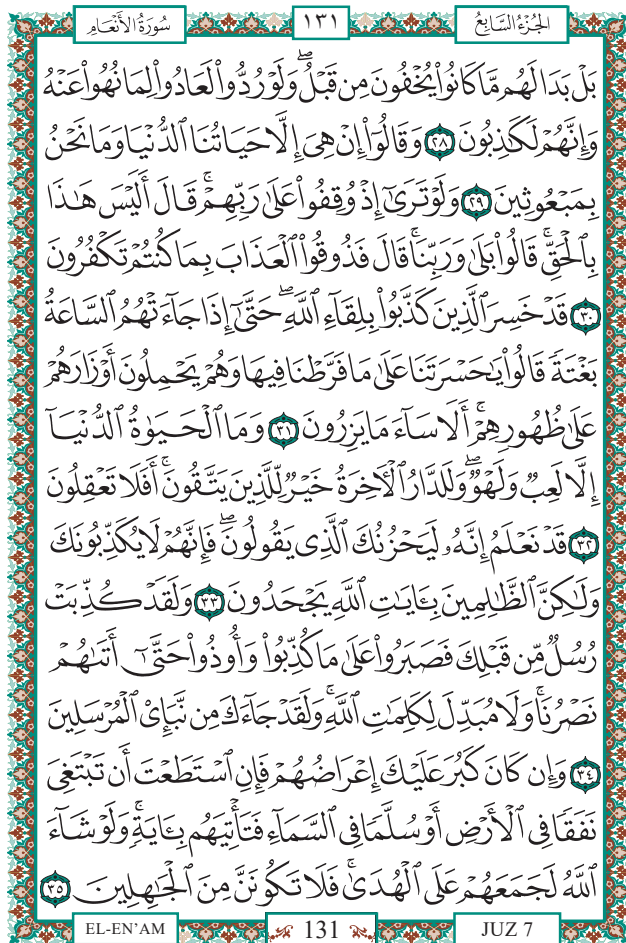 سُورَةُ الأَنْعَام ١٣١ الجُزْءُ السَّابِعُ
بَلْ بَدَا لَهُم مَّا كَانُوا۟ يُخْفُونَ مِن قَبْلُ ۖ وَلَوْ رُدُّوا۟ لَعَادُوا۟ لِمَا نُهُوا۟ عَنْهُ
وَإِنَّهُمْ لَكَٰذِبُونَ ٢٨ وَقَالُوٓا۟ إِنْ هِىَ إِلَّا حَيَاتُنَا ٱلدُّنْيَا وَمَا نَحْنُ
بِمَبْعُوثِينَ ٢٩ وَلَوْ تَرَىٰٓ إِذْ وُقِفُوا۟ عَلَىٰ رَبِّهِمْ ۚ قَالَ أَلَيْسَ هَٰذَا
بِٱلْحَقِّ ۚ قَالُوا۟ بَلَىٰ وَرَبِّنَا ۚ قَالَ فَذُوقُوا۟ ٱلْعَذَابَ بِمَا كُنتُمْ تَكْفُرُونَ
٣٠ قَدْ خَسِرَ ٱلَّذِينَ كَذَّبُوا۟ بِلِقَآءِ ٱللَّهِ ۖ حَتَّىٰٓ إِذَا جَآءَتْهُمُ ٱلسَّاعَةُ
بَغْتَةً قَالُوا۟ يَٰحَسْرَتَنَا عَلَىٰ مَا فَرَّطْنَا فِيهَا وَهُمْ يَحْمِلُونَ أَوْزَارَهُمْ
عَلَىٰ ظُهُورِهِمْ ۚ أَلَا سَآءَ مَا يَزِرُونَ ٣١ وَمَا ٱلْحَيَوٰةُ ٱلدُّنْيَآ
إِلَّا لَعِبٌ وَلَهْوٌ ۖ وَلَلدَّارُ ٱلْءَاخِرَةُ خَيْرٌ لِّلَّذِينَ يَتَّقُونَ ۗ أَفَلَا تَعْقِلُونَ
٣٢ قَدْ نَعْلَمُ إِنَّهُۥ لَيَحْزُنُكَ ٱلَّذِى يَقُولُونَ ۖ فَإِنَّهُمْ لَا يُكَذِّبُونَكَ
وَلَٰكِنَّ ٱلظَّٰلِمِينَ بِـَٔايَٰتِ ٱللَّهِ يَجْحَدُونَ ٣٣ وَلَقَدْ كُذِّبَتْ
رُسُلٌ مِّن قَبْلِكَ فَصَبَرُوا۟ عَلَىٰ مَا كُذِّبُوا۟ وَأُوذُوا۟ حَتَّىٰٓ أَتَىٰهُمْ
نَصْرُنَا ۚ وَلَا مُبَدِّلَ لِكَلِمَٰتِ ٱللَّهِ ۚ وَلَقَدْ جَآءَكَ مِن نَّبَإِى۟ ٱلْمُرْسَلِينَ
٣٤ وَإِن كَانَ كَبُرَ عَلَيْكَ إِعْرَاضُهُمْ فَإِنِ ٱسْتَطَعْتَ أَن تَبْتَغِىَ
نَفَقًا فِى ٱلْأَرْضِ أَوْ سُلَّمًا فِى ٱلسَّمَآءِ فَتَأْتِيَهُم بِـَٔايَةٍ ۚ وَلَوْ شَآءَ
ٱللَّهُ لَجَمَعَهُمْ عَلَى ٱلْهُدَىٰ ۚ فَلَا تَكُونَنَّ مِنَ ٱلْجَٰهِلِينَ ٣٥
EL-EN'AM 131 JUZ 7